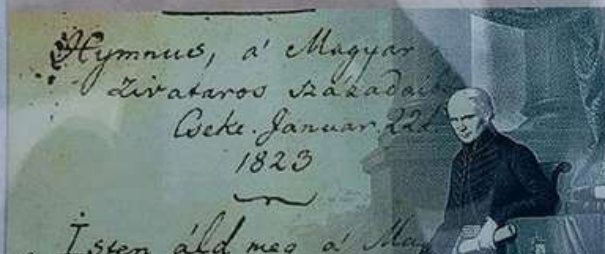 Hymnus, a' Magyar
Zivataros századaiból
Cseke. Januar. 22d.
1823
Isten áld meg a' Ma